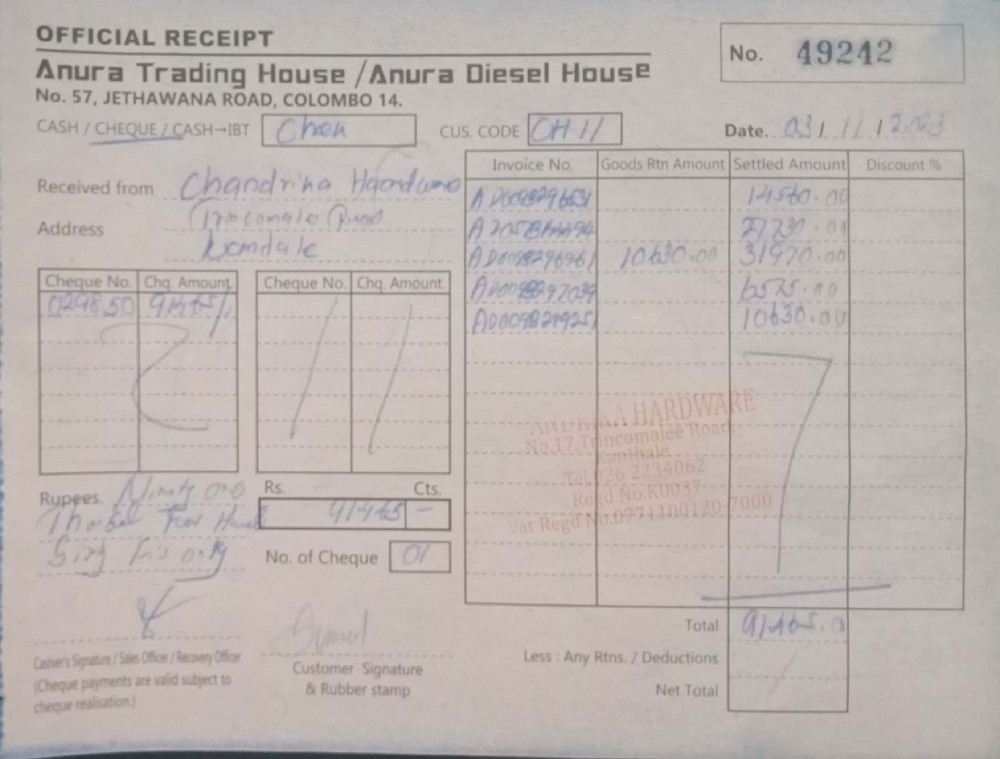 OFFICIAL RECEIPT
No. 49242
Anura Trading House / Anura Diesel House
No. 57, JETHAWANA ROAD, COLOMBO 14.
CASH / CHEQUE / CASH→IBT
CUS. CODE CH 11
Date. 03/11/2023
Received from Chandrika
Address Trincomalee Road
Invoice No. Goods Rtn Amount Settled Amount Discount %
14560.00
27730.00
10630.00 31970.00
6575.00
10630.00
Cheque No. Chq. Amount Cheque No. Chq. Amount.
029850 91465/-
HARDWARE
No.17, Trincomalee Road,
Kanthale
Tel:026 2234062
Regd No.K0037
Vat Regd No.0771100120-7000
Rupees. Ninety one
Rs. Cts.
91465 -
Sixty five only
No. of Cheque 01
Total 91465.0
Less : Any Rtns. / Deductions
Net Total
Cashier's Signature / Sales Officer / Recovery Officer
(Cheque payments are valid subject to
cheque realisation.)
Customer Signature
& Rubber stamp